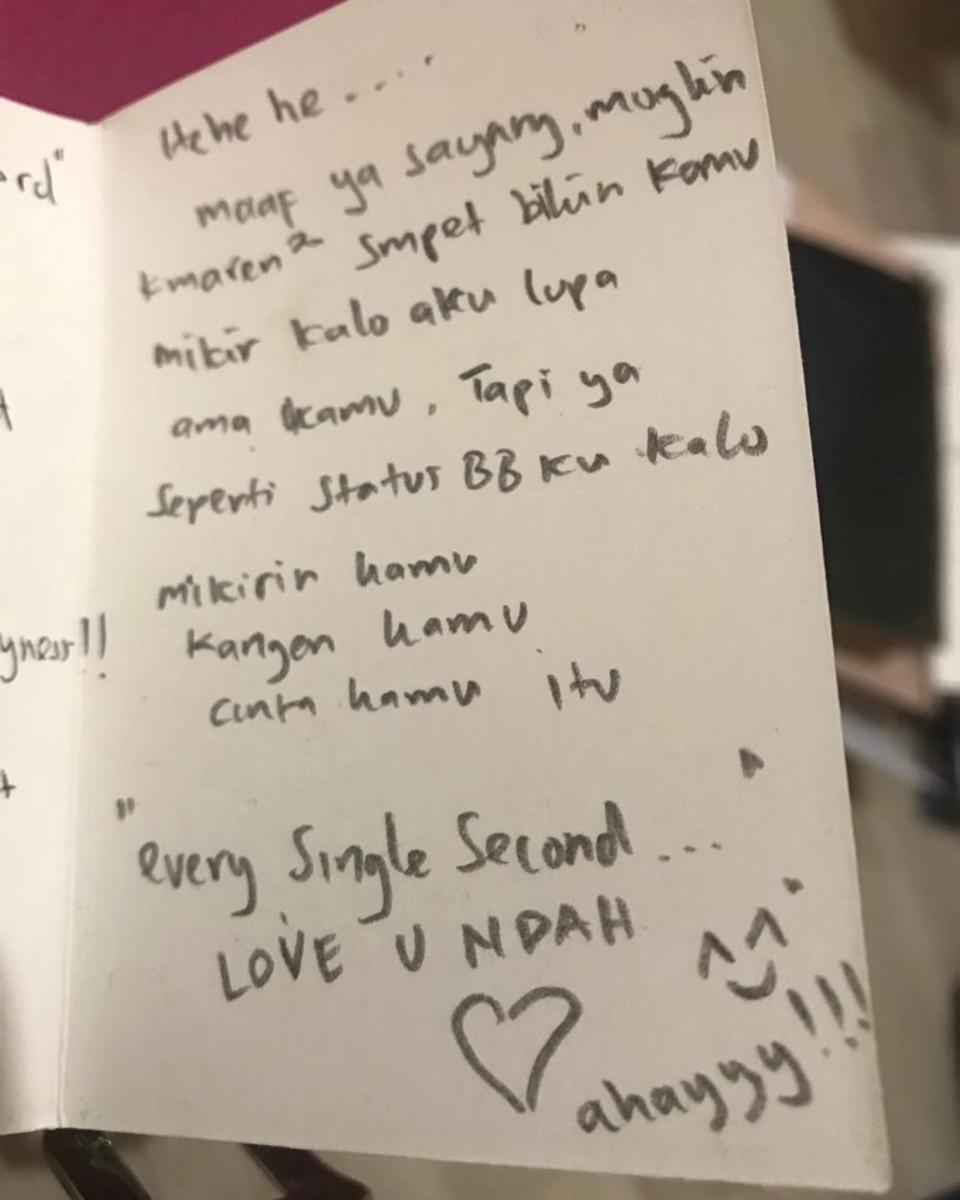 Hehe he....
maaf ya sayang, mugkin
kmaren² smpet bikin kamu
mikir kalo aku lupa
ama kamu, Tapi ya
seperti status BB ku kalo
mikirin kamu
kangen kamu
cinta kamu itu
"every single second..."
LOVE U NDAH
♡ ^‿^
ahayyy!!!